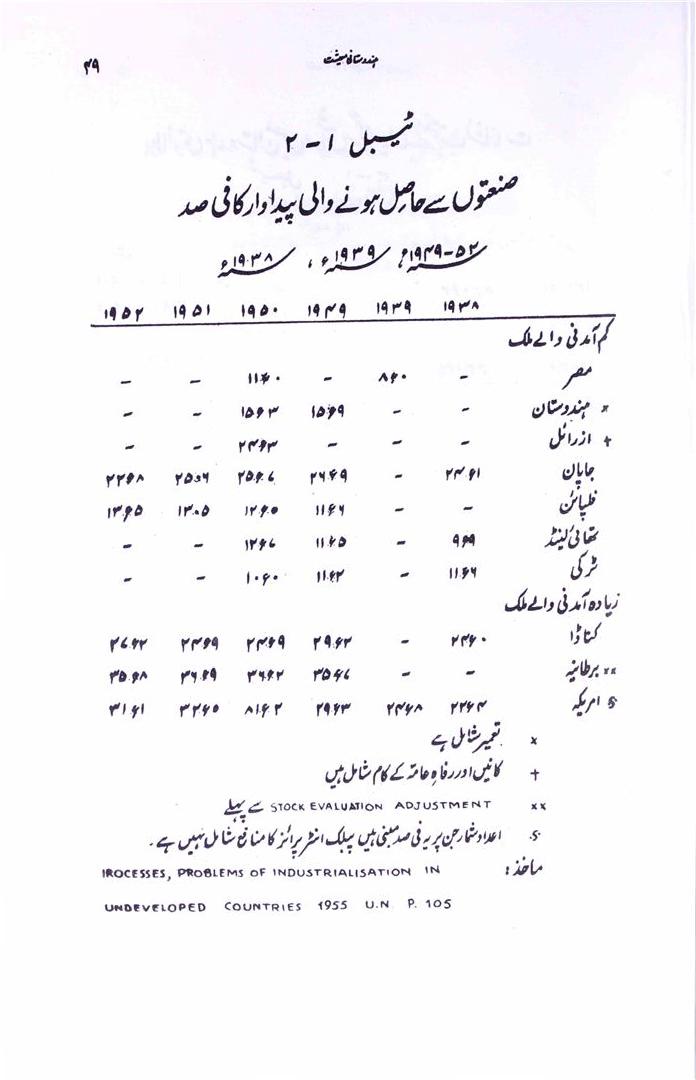 ہندوستانی معیشت ۴۹
ٹیبل ۱-۲
صنعتوں سے حاصل ہونے والی پیداوار کا فی صد
۵۲-۱۹۴۹ء، ۱۹۳۹ء، ۱۹۳۸ء
۱۹۳۸ ۱۹۳۹ ۱۹۴۹ ۱۹۵۰ ۱۹۵۱ ۱۹۵۲
کم آمدنی والے ملک
مصر - ۸ء۰ - ۱۱ء۰ - -
× ہندوستان - - ۱۵ء۹ ۱۵ء۳ - -
+ ازرائل - - - ۲۴ء۳ - -
جاپان ۲۴ء۱ - ۲۶ء۹ ۲۵ء۷ ۲۵ء۶ ۲۲ء۸
فلپائن - - ۱۱ء۶ ۱۲ء۵ ۱۳۰۵ ۱۳ء۵
تھائی لینڈ ۹ء۹ - ۱۱ء۵ ۱۲ء۷ - -
ٹرکی ۱۱ء۶ - ۱۱ء۲ ۱۰ء۰ - -
زیادہ آمدنی والے ملک
کناڈا ۲۴ء۰ - ۲۹ء۲ ۲۴ء۹ ۲۴ء۹ ۲۷ء۲
×× برطانیہ - - ۳۵ء۷ ۳۶ء۲ ۳۶ء۹ ۳۵ء۸
§ امریکہ ۲۲ء۴ ۲۴ء۸ ۲۹ء۳ ۸۱ء۲ ۳۲ء۵ ۳۱ء۱
× تعمیر شامل ہے
+ کانیں اور رفاہ عامہ کے کام شامل ہیں
×× STOCK EVALUATION ADJUSTMENT سے پہلے
§ اعداد شمار جن پر یہ فی صد مبنی ہیں پبلک انٹرپرائز کا منافع شامل نہیں ہے۔
ماخذ: IROCESSES, PROBLEMS OF INDUSTRIALISATION IN
UNDEVELOPED COUNTRIES 1955 U.N. P. 105